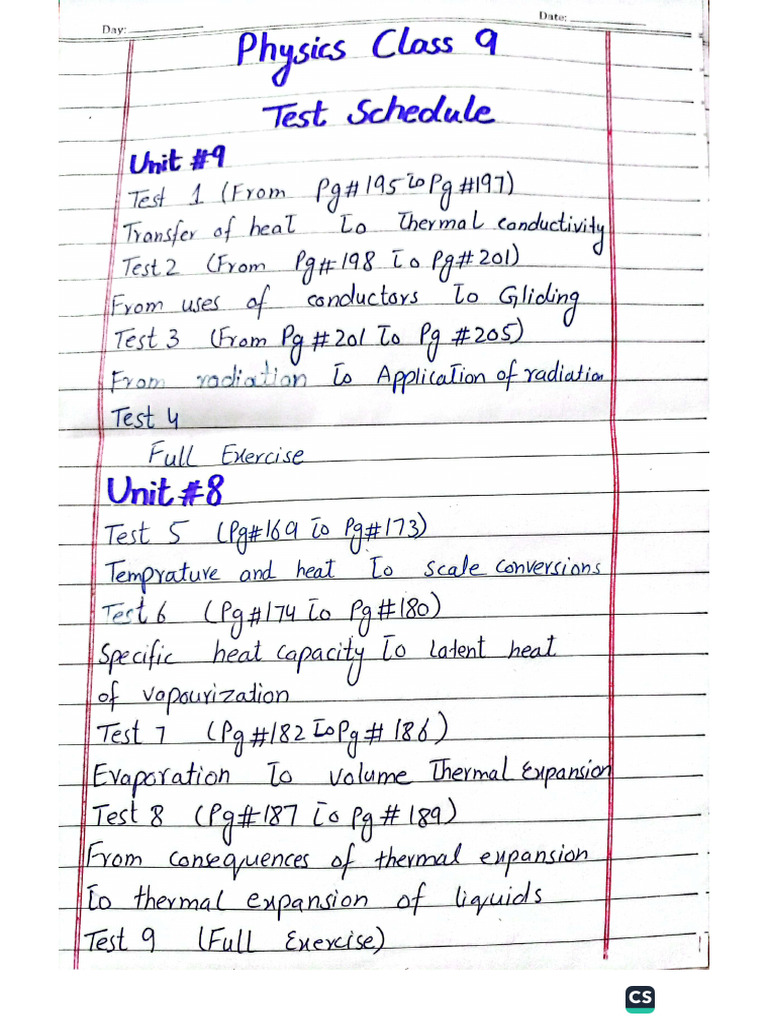 Day:
Date:
Physics Class 9
Test Schedule
Unit #9
Test 1 (From Pg#195 to Pg#197)
Transfer of heat to Thermal conductivity
Test 2 (From Pg#198 to Pg#201)
From uses of conductors to Gliding
Test 3 (From Pg #201 to Pg #205)
From radiation to Application of radiation
Test 4
Full Exercise
Unit #8
Test 5 (Pg#169 to Pg#173)
Temprature and heat to scale conversions
Test 6 (Pg#174 to Pg#180)
Specific heat capacity to latent heat
of vapourization
Test 7 (Pg#182 to Pg# 186)
Evaporation to volume Thermal Expansion
Test 8 (Pg#187 to Pg# 189)
From consequences of thermal expansion
to thermal expansion of liquids
Test 9 (Full Exercise)
CS